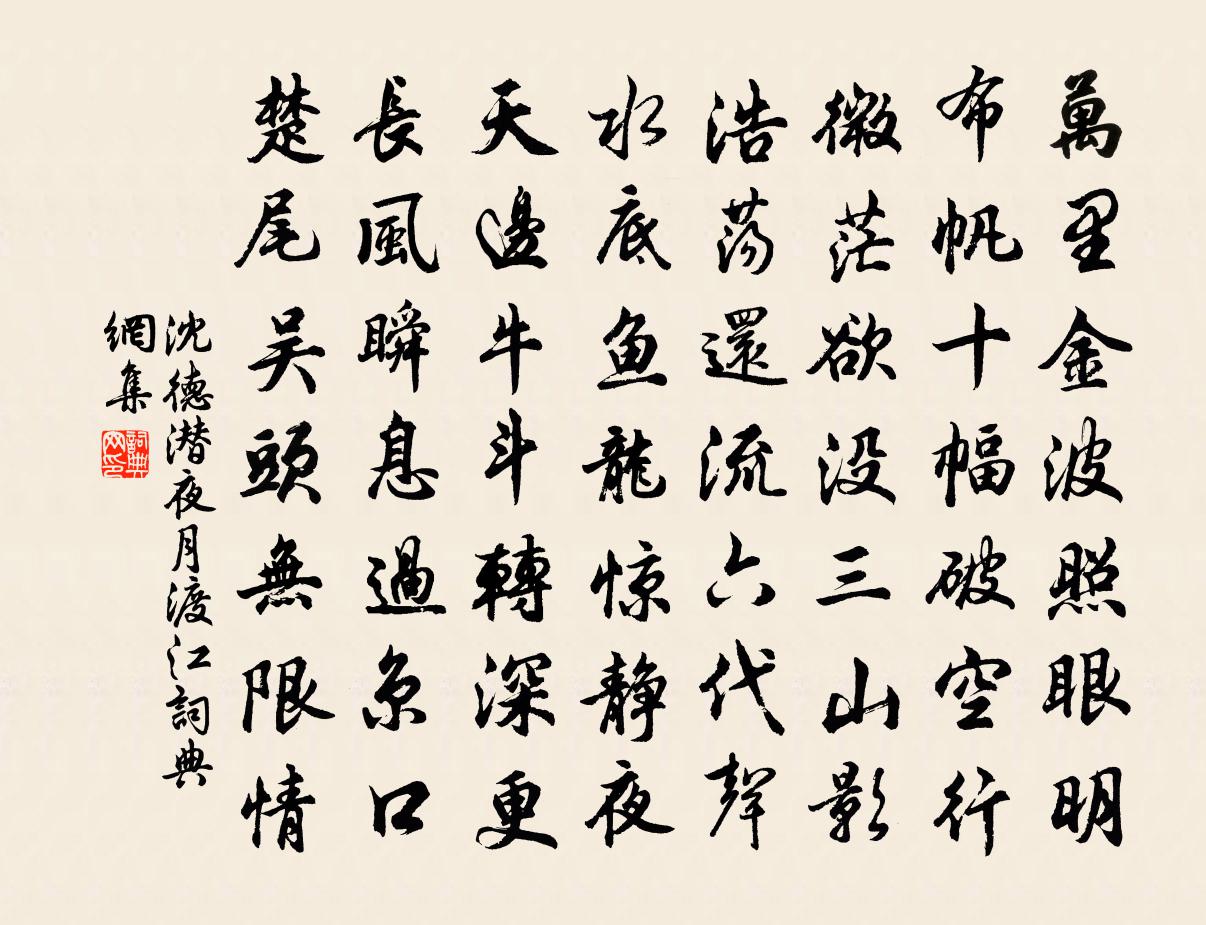 萬里金波照眼明
布帆十幅破空行
微茫欲没三山影
浩荡還流六代聲
水底鱼龍惊静夜
天邊牛斗轉深更
長風瞬息過京口
楚尾吴頭無限情
沈德潜夜月渡江詞典
網集
詞典网印